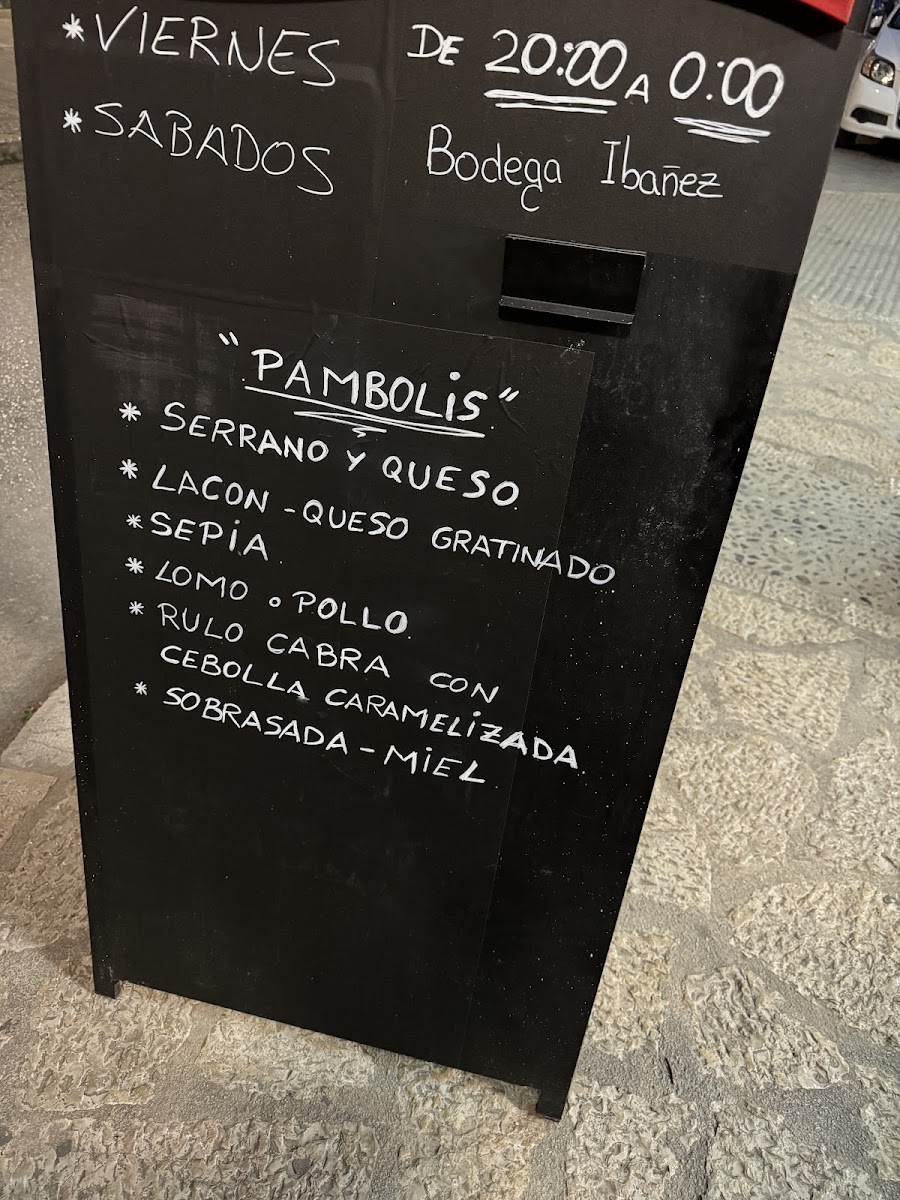 * VIERNES DE 20:00 A 0:00
* SABADOS Bodega Ibañez
"PAMBOLiS"
* SERRANO Y QUESO.
* LACON - QUESO GRATINADO
* SEPiA.
* LOMO o POLLO.
* RULO CABRA CON
CEBOLLA CARAMELiZADA.
* SOBRASADA - MiEL